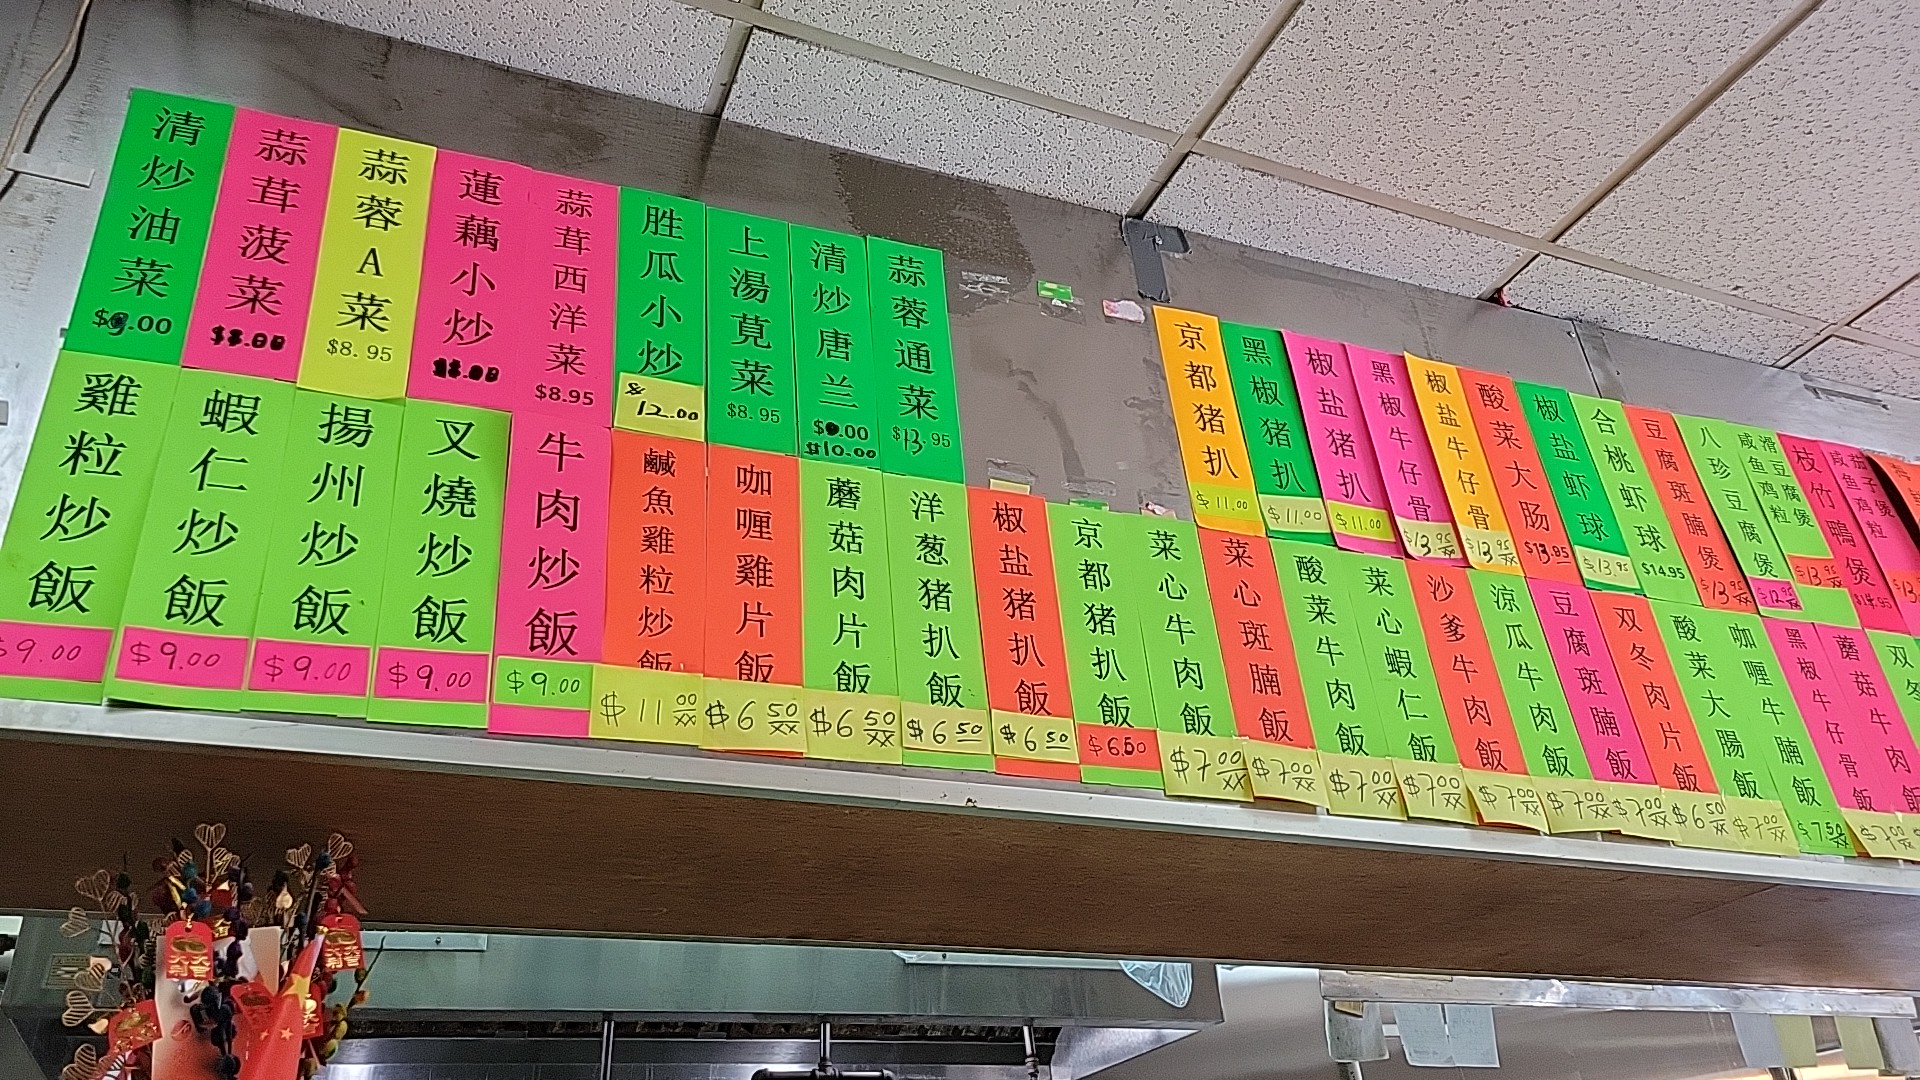 清炒油菜
$9.00
蒜茸菠菜
蒜蓉A菜
$8.95
蓮藕小炒
蒜茸西洋菜
$8.95
胜瓜小炒
$12.00
上湯莧菜
$8.95
清炒唐兰
$10.00
蒜蓉通菜
$13.95
京都猪扒
$11.00
黑椒猪扒
$11.00
椒盐猪扒
$11.00
黑椒牛仔骨
$13.95
椒盐牛仔骨
$13.95
酸菜大肠
$13.95
椒盐虾球
$13.95
合桃虾球
$14.95
豆腐斑腩煲
$13.95
八珍豆腐煲
$12.95
滑豆腐煲
咸鱼鸡粒
枝竹鴨煲
茄子煲
咸鱼鸡粒
雞粒炒飯
$9.00
蝦仁炒飯
$9.00
揚州炒飯
$9.00
叉燒炒飯
$9.00
牛肉炒飯
$9.00
鹹魚雞粒炒飯
$11.00
咖喱雞片飯
$6.50
蘑菇肉片飯
$6.50
洋葱猪扒飯
$6.50
椒盐猪扒飯
$6.50
京都猪扒飯
$6.50
菜心牛肉飯
$7.00
菜心斑腩飯
$7.00
酸菜牛肉飯
$7.00
菜心蝦仁飯
$7.00
沙爹牛肉飯
$7.00
涼瓜牛肉飯
$7.00
豆腐斑腩飯
$7.00
双冬肉片飯
$6.50
酸菜大腸飯
$7.00
咖喱牛腩飯
$7.50
黑椒牛仔骨飯
$7.00
蘑菇牛肉飯
双冬
大吉大利